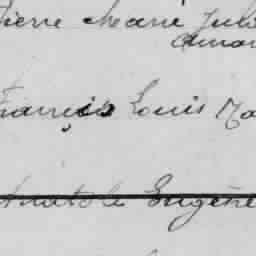 Pierre Marie Juli
Aman
François Louis Ma
Anatole Eugène